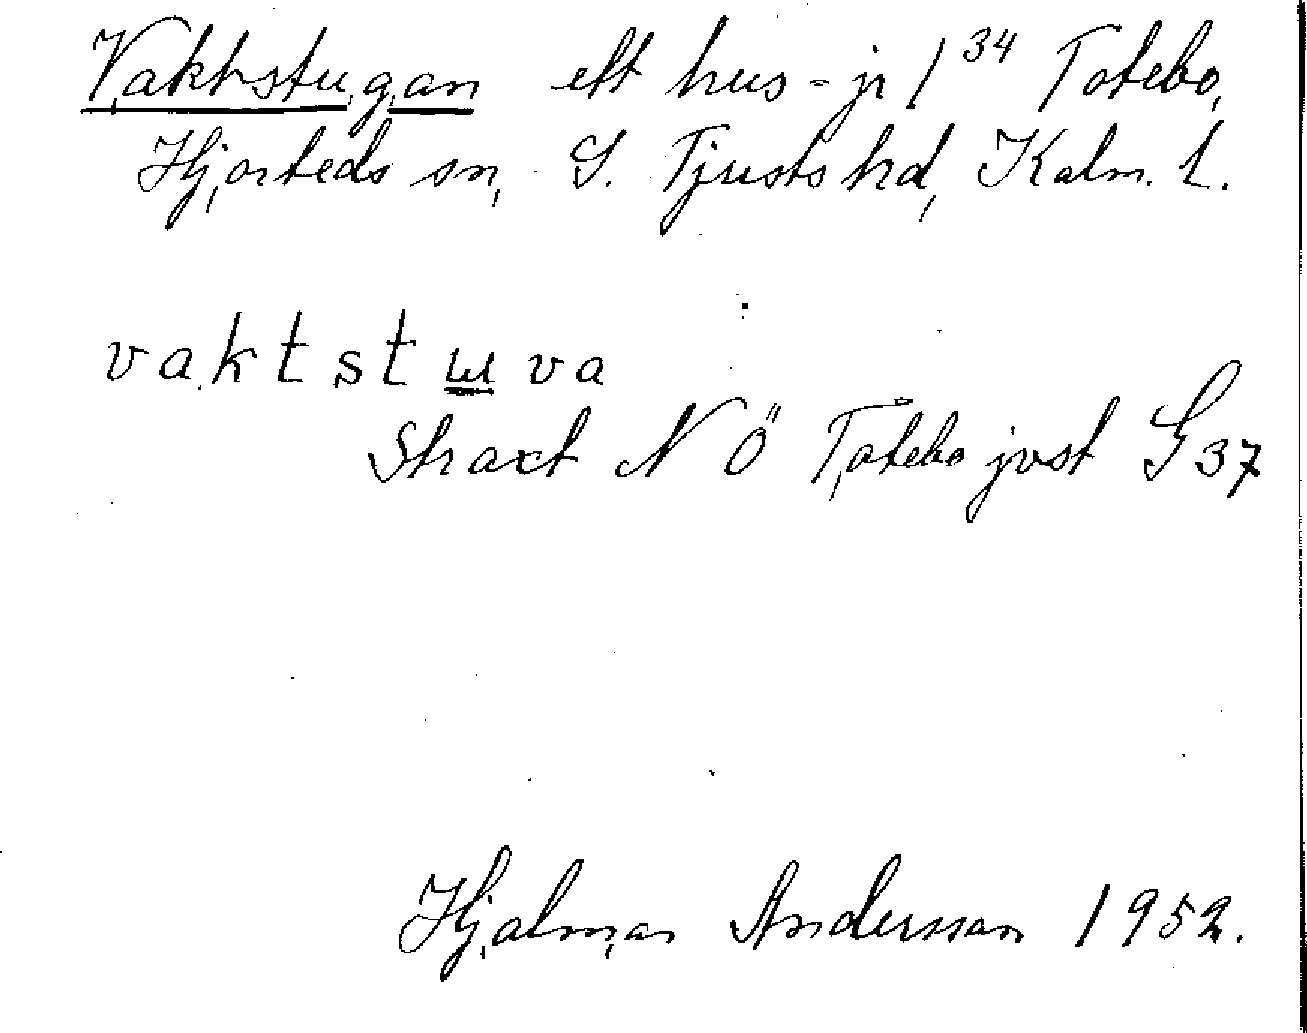 Vaktstugan ett hus - jr 1 34 Totebo,
Hjorteds sn, S. Tjusts hd, Kalm. L.
vaktstɯva
Straxt N Ö Totebo jvst G 37
Hjalmar Andersson 1952.